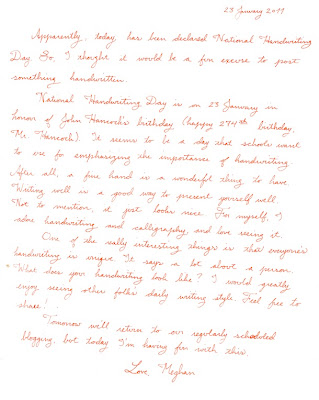 23 January 2011
Apparently, today, has been declared National Handwriting
Day. So, I thought it would be a fun excuse to post
something handwritten.
National Handwriting Day is on 23 January in
honour of John Hancock's birthday (happy 274th birthday,
Mr. Hancock). It seems to be a day that schools want
to use for emphasizing the importance of handwriting.
After all, a fine hand is a wonderful thing to have.
Writing well is a good way to present yourself well.
Not to mention, it just looks nice. For myself, I
adore handwriting and calligraphy, and love seeing it.
One of the really interesting things is that everyone's
handwriting is unique. It says a lot about a person.
What does your handwriting look like? I would greatly
enjoy seeing other folk's daily writing style. Feel free to
share!
Tomorrow we'll return to our regularly scheduled
blogging, but today I'm having fun with this.
Love, Meghan